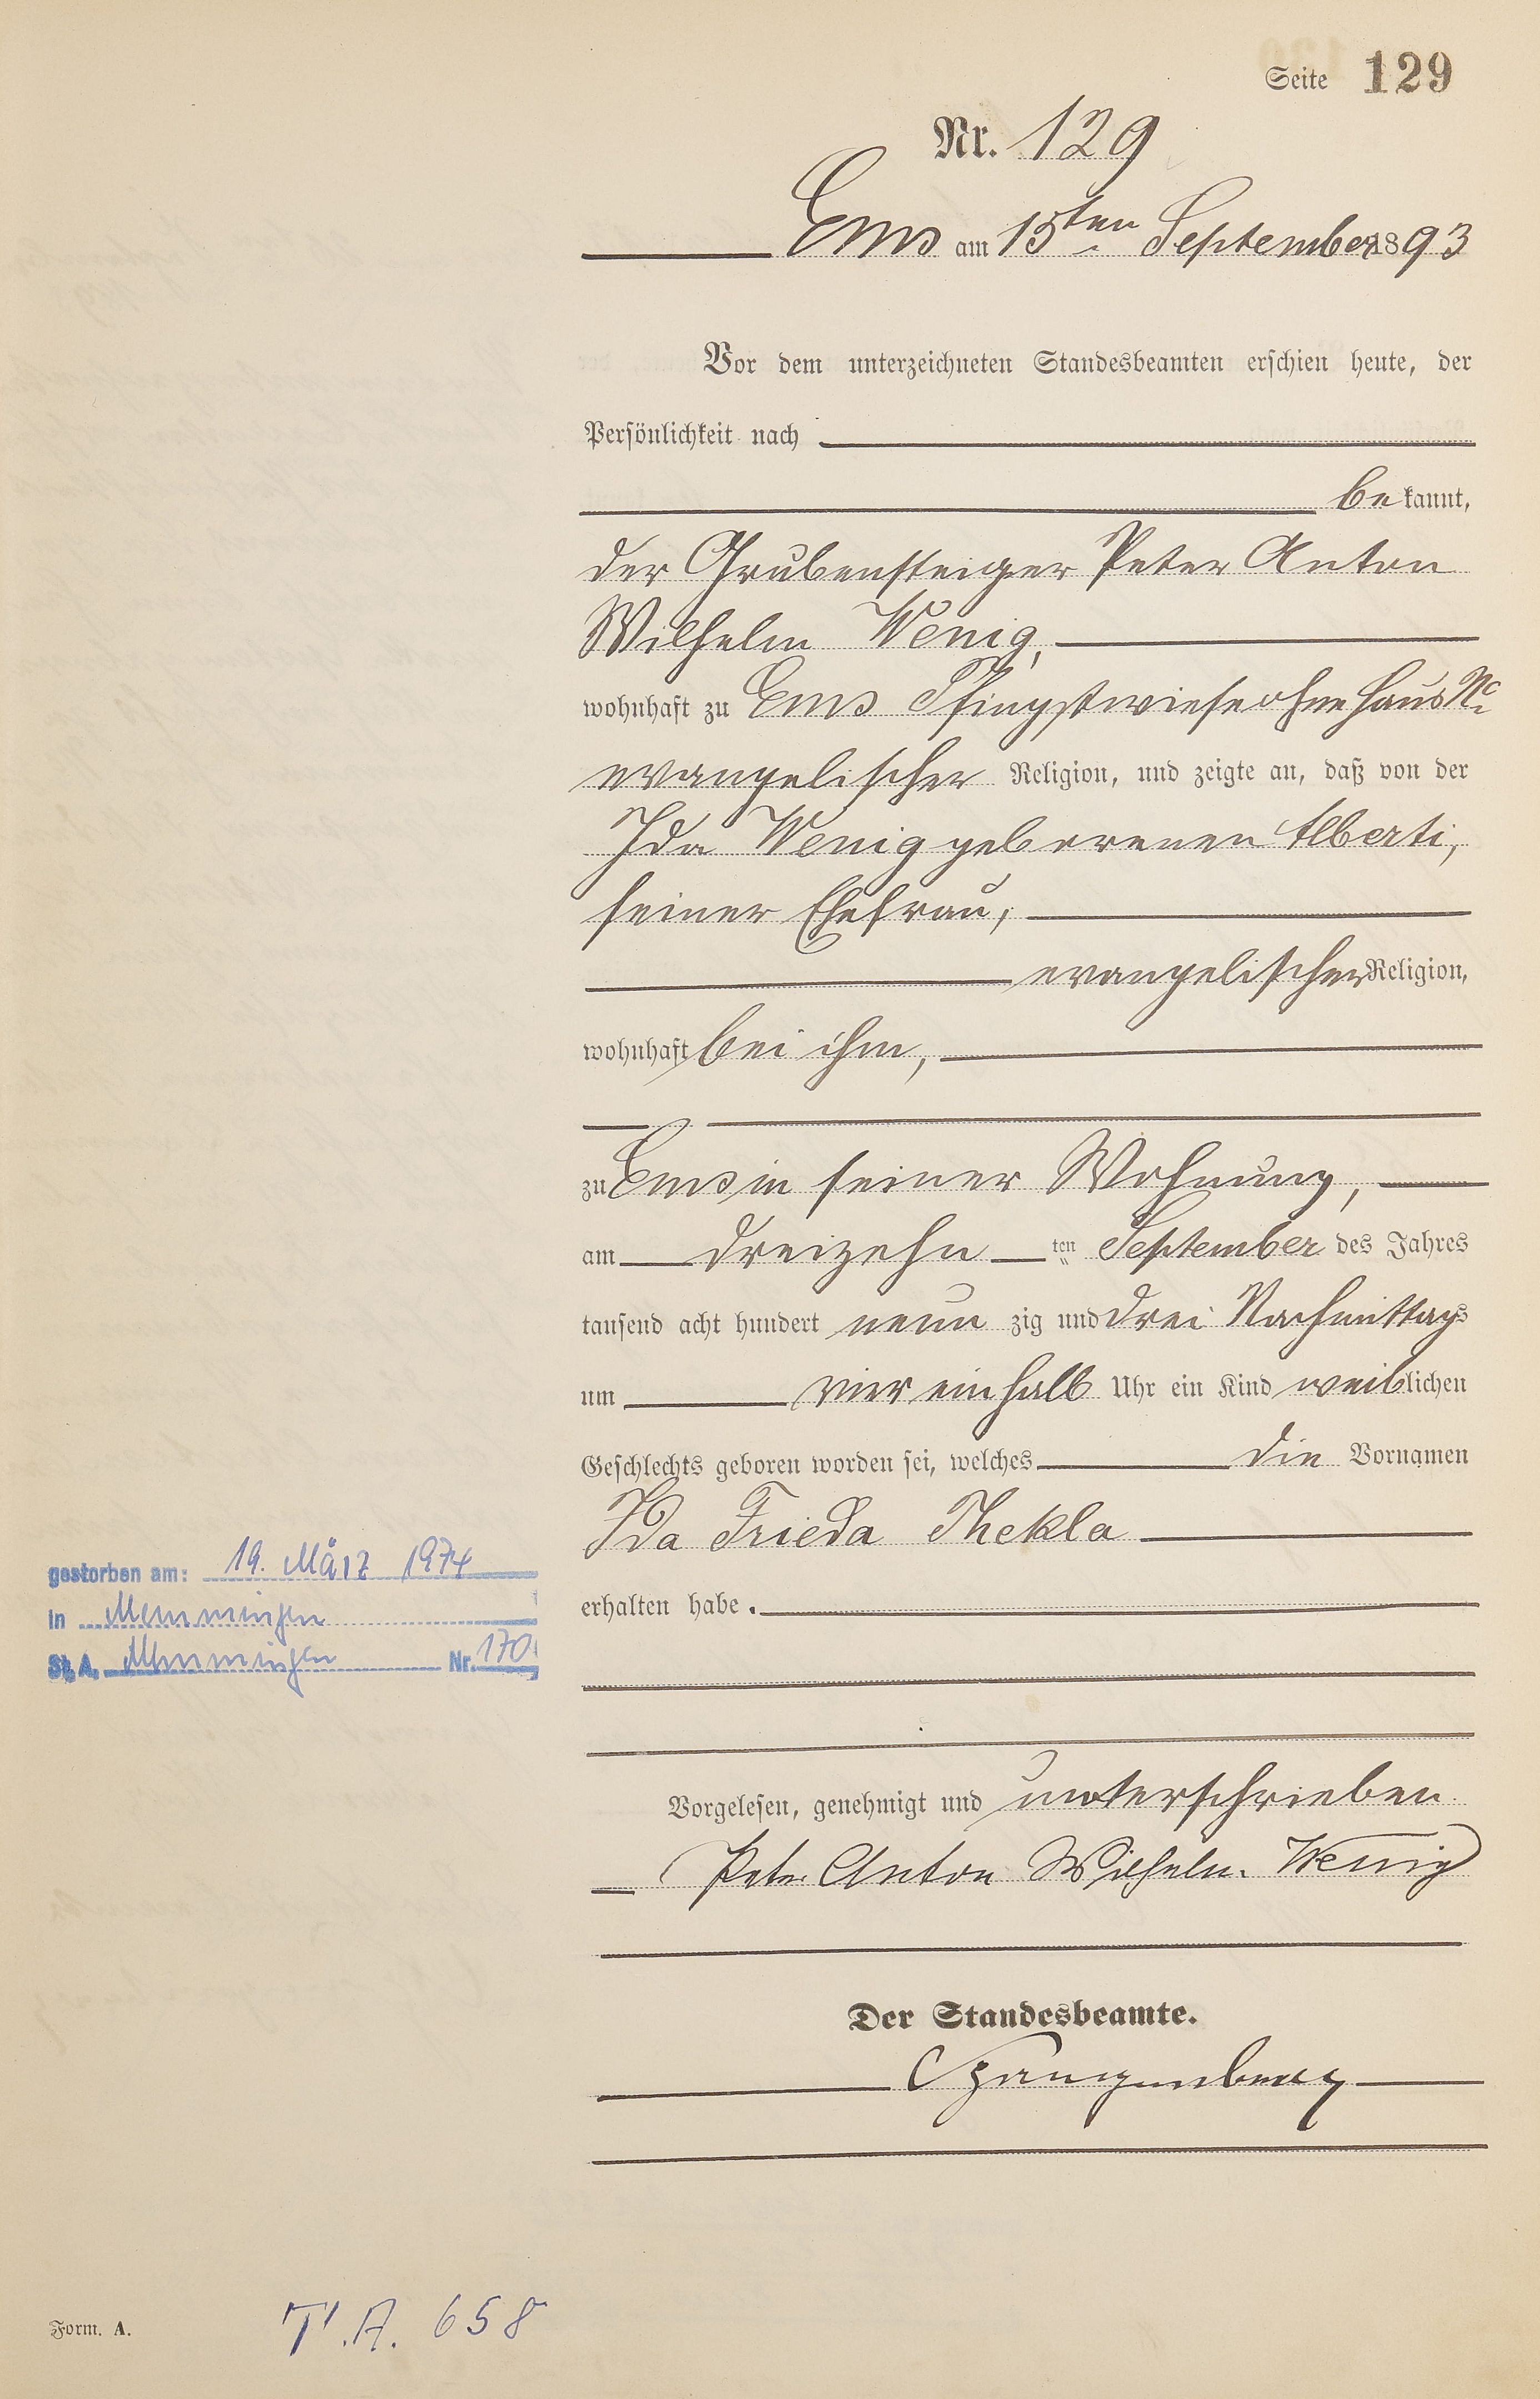 Seite 129
Nr. 129
Ems am 15ten September 1893
Vor dem unterzeichneten Standesbeamten erschien heute, der
Persönlichkeit nach
bekannt,
der Grubensteiger Peter Anton
Wilhelm Wenig,
wohnhaft zu Ems Pfingstwiese ohne Haus Nr.
evangelischer Religion, und zeigte an, daß von der
Ida Wenig geborenen Alberti,
seiner Ehefrau,
evangelischer Religion,
wohnhaft bei ihm,
zu Ems in seiner Wohnung,
am dreizehn ten September des Jahres
tausend acht hundert neun zig und drei Nachmittags
um vier einhalb Uhr ein Kind weiblichen
Geschlechts geboren worden sei, welches die Vornamen
Ida Frieda Thekla
erhalten habe.
gestorben am: 19. März 1974
in Memmingen
St. A. Memmingen Nr. 170
Vorgelesen, genehmigt und unterschrieben
Peter Anton Wilhelm Wenig
Der Standesbeamte.
Spangenberg
Form. A.
T.A. 658